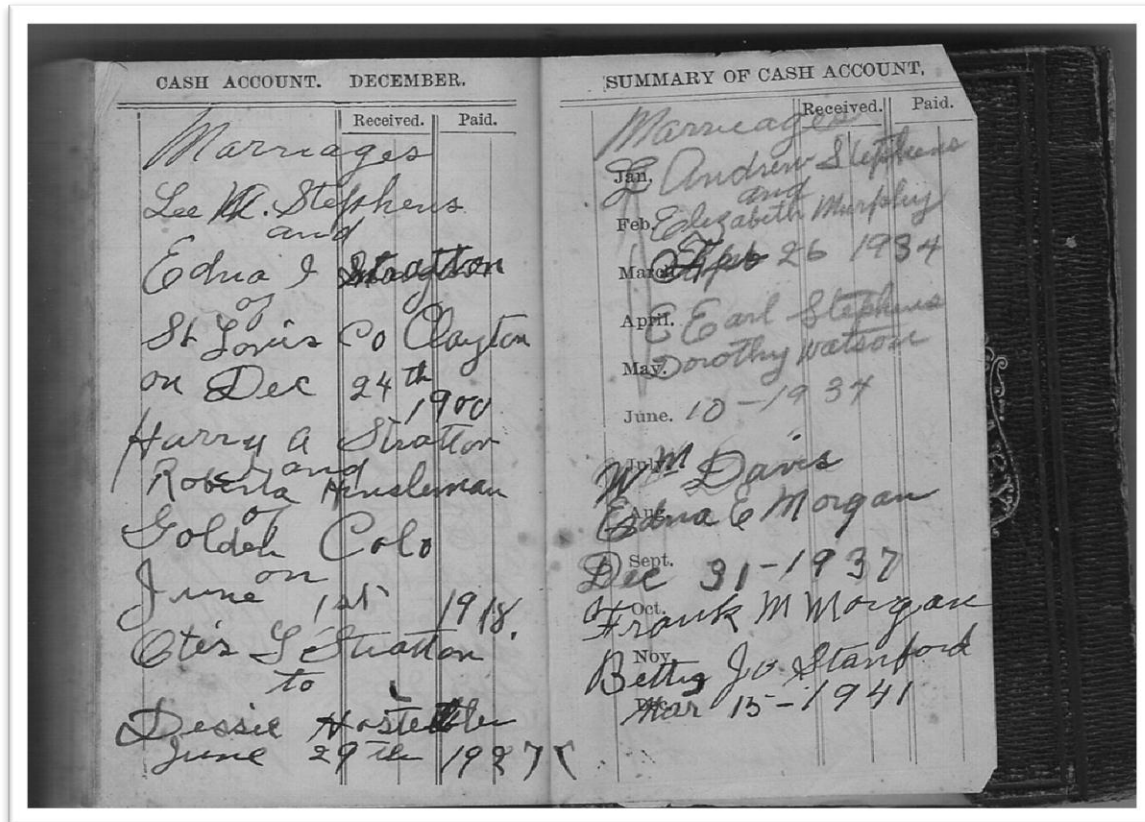 CASH ACCOUNT. DECEMBER.
Received. Paid.
Marriages
Lee A. Stephens
and
Edna I Stratton
of
St Louis Co Clayton
on Dec 24th
1900
Harry A Stratton
and
Roberta
of
Golden Colo
on
June 1st 1918.
Otis L Stratton
to
Dessie Hostetler
June 29th 1927
SUMMARY OF CASH ACCOUNT.
Received. Paid.
Marriages
Jan. L Andrew Stephens
and
Feb. Elizabeth Murphy
March. 26 1934
April. E Earl Stephens
May. Dorothy Watson
June. 10-1934
July. Wm Davis
Aug. Edna E Morgan
Sept. Dec 31-1937
Oct. Frank M Morgan
Nov. Betty Jo Stanford
Dec. Mar 15-1941